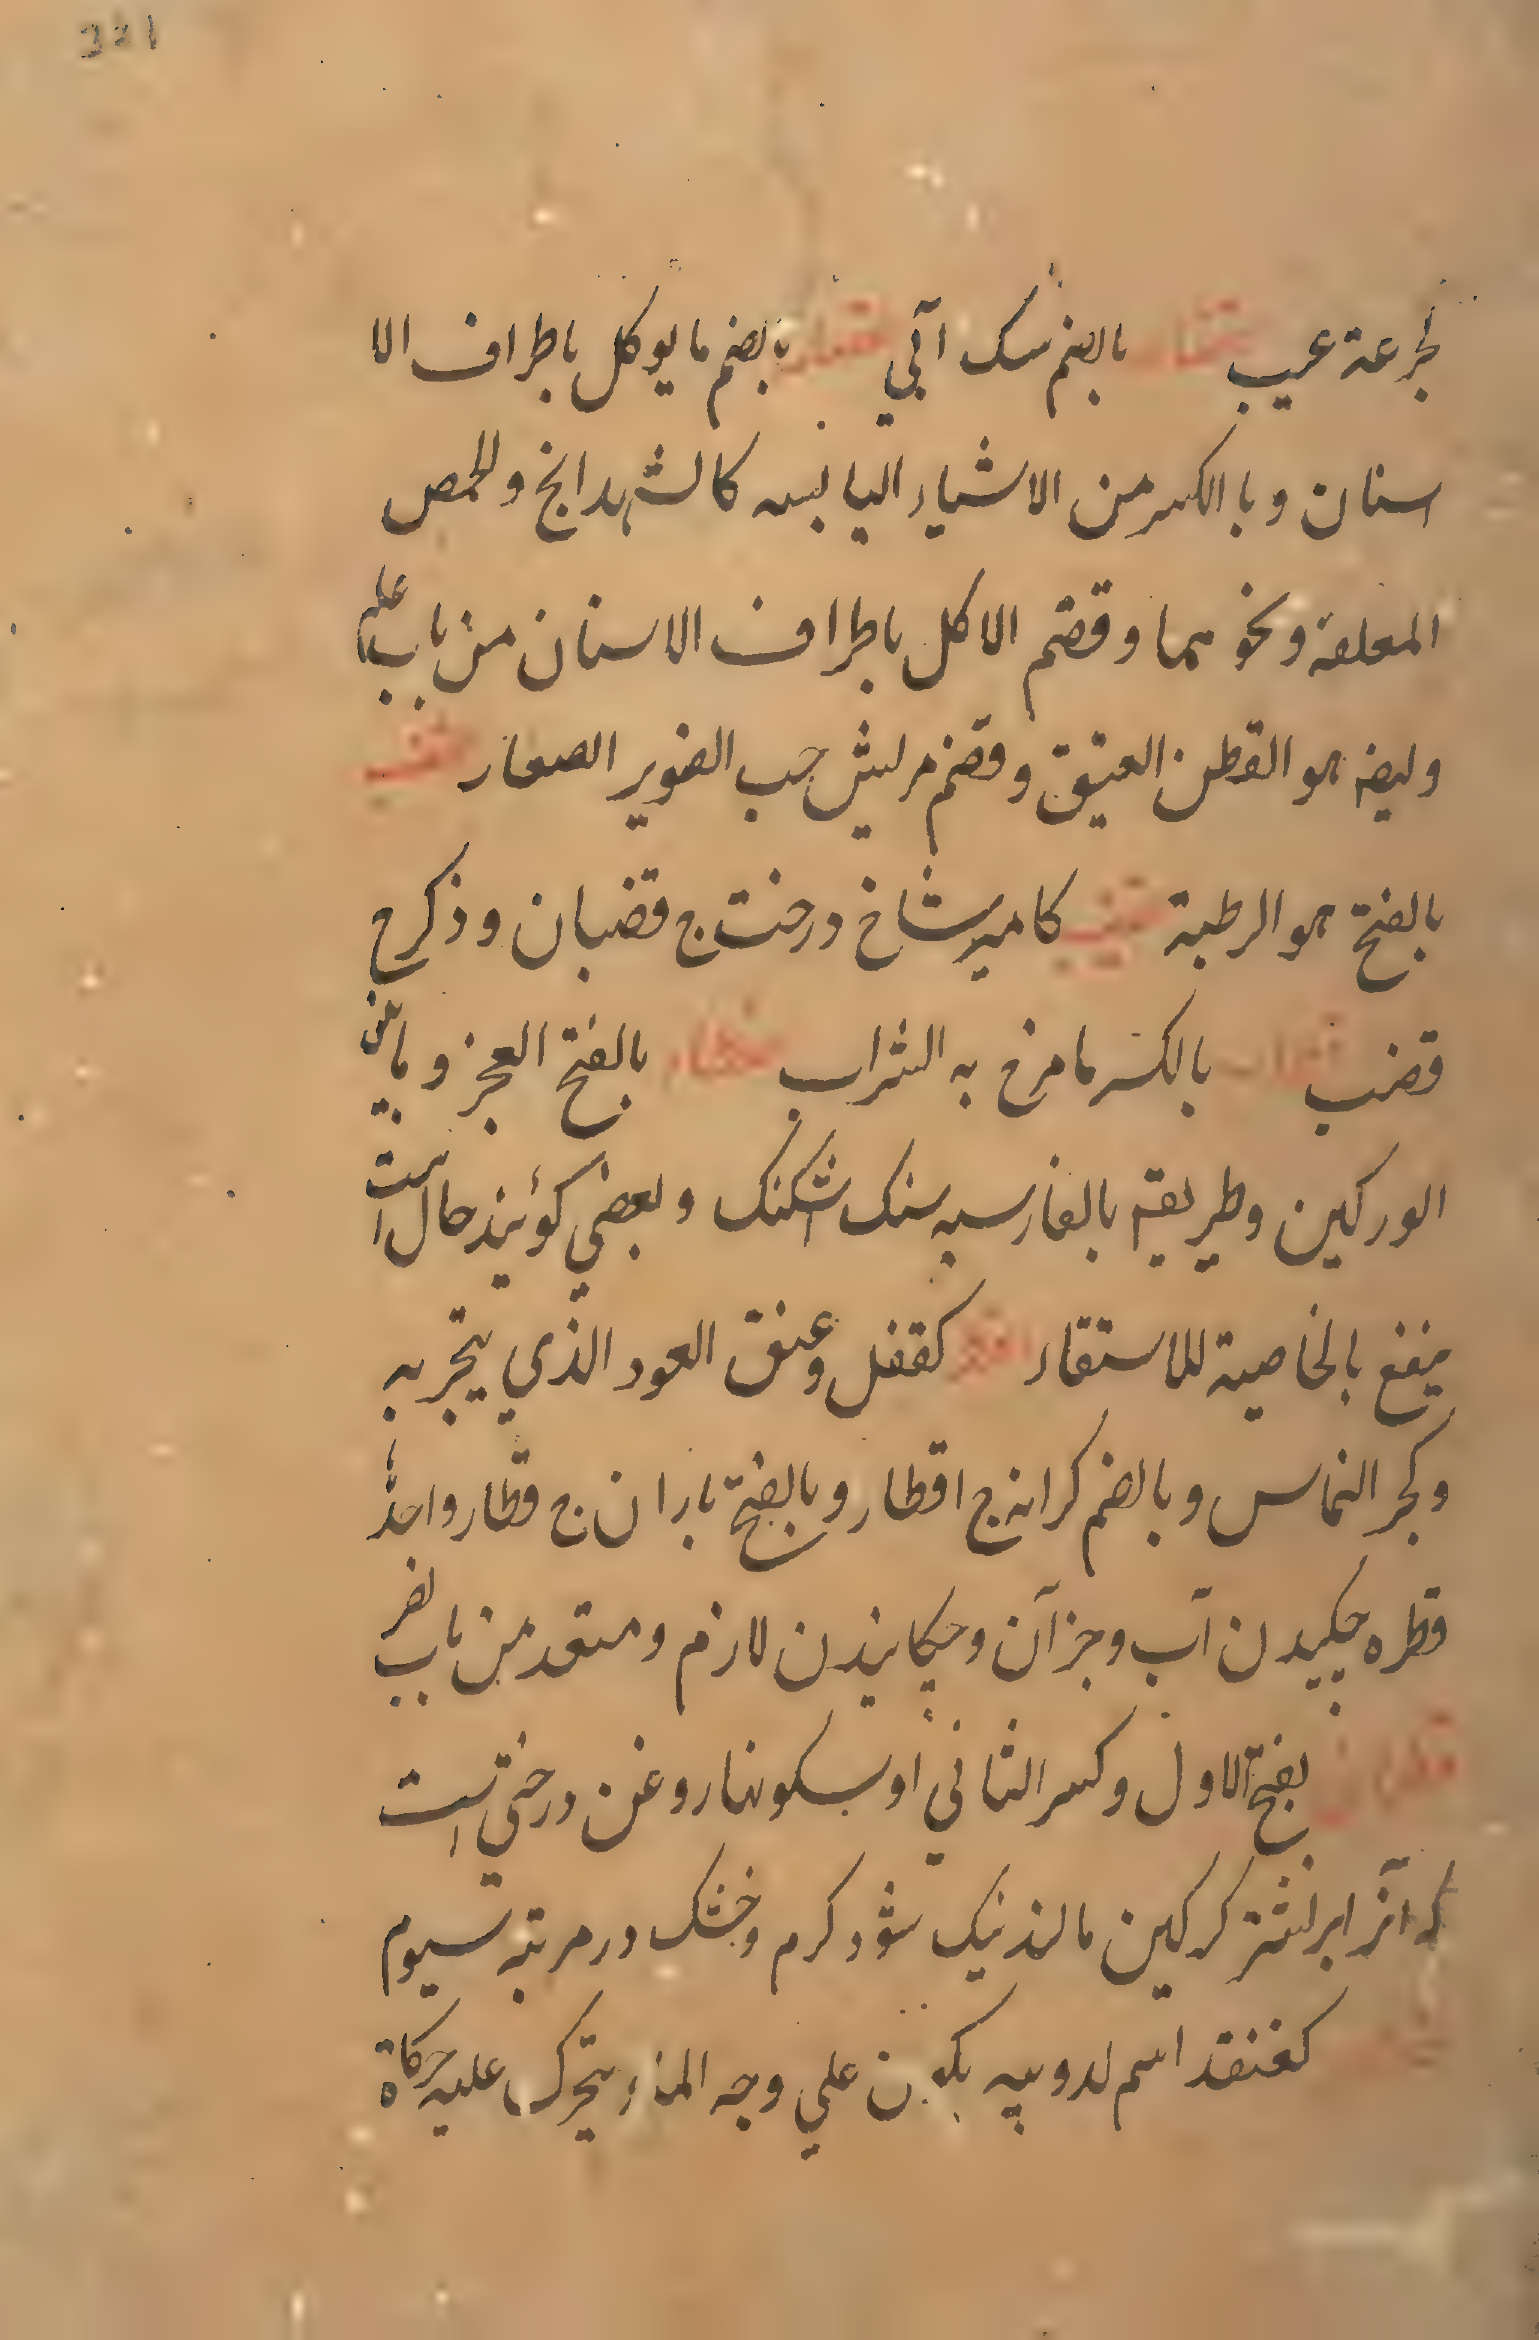 321
لجرعة عيب بالضم سک آبي بالضم ما يوكل باطراف الا
سنان وبا الكسر من الاشياء اليابسه كالشهدانج والحمص
المعلقة ونحو هما وقضم الاكل باطراف الاسنان من باب علم
وليفه هو القطن العتيق وقضم قريش حب الصنوبر الصغار قضب
بالفتح هو الرطبة قضيب كامير شاخ درخت ج قضبان وذكر ج
قضب قطاب بالكسر ما مزج به الشراب بالفتح العجز وما بين
الوركين وطريقه بالفارسيه سنک اشکنک وبعضي کوئيند حال است
ينفع بالخاصية للاستقاء قطر كقفل وعنق العود الذي يتجر به
وكجر النحاس وبالضم كرانه ج اقطار وبالفتح باران ج قطار واحد
قطره چکيدن آب وجز آن وچکانيدن لازم ومتعد من باب نصر
قطران بفتح الاول وكسر الثاني او بسكونها روغن درختي است
که آنرا بر شتر کرکين مالند نيک شود کرم وخشک در مرتبه سيوم
كغنقد اسم لدويبه يكون علي وجه الماء يتحرک عليه حركاة